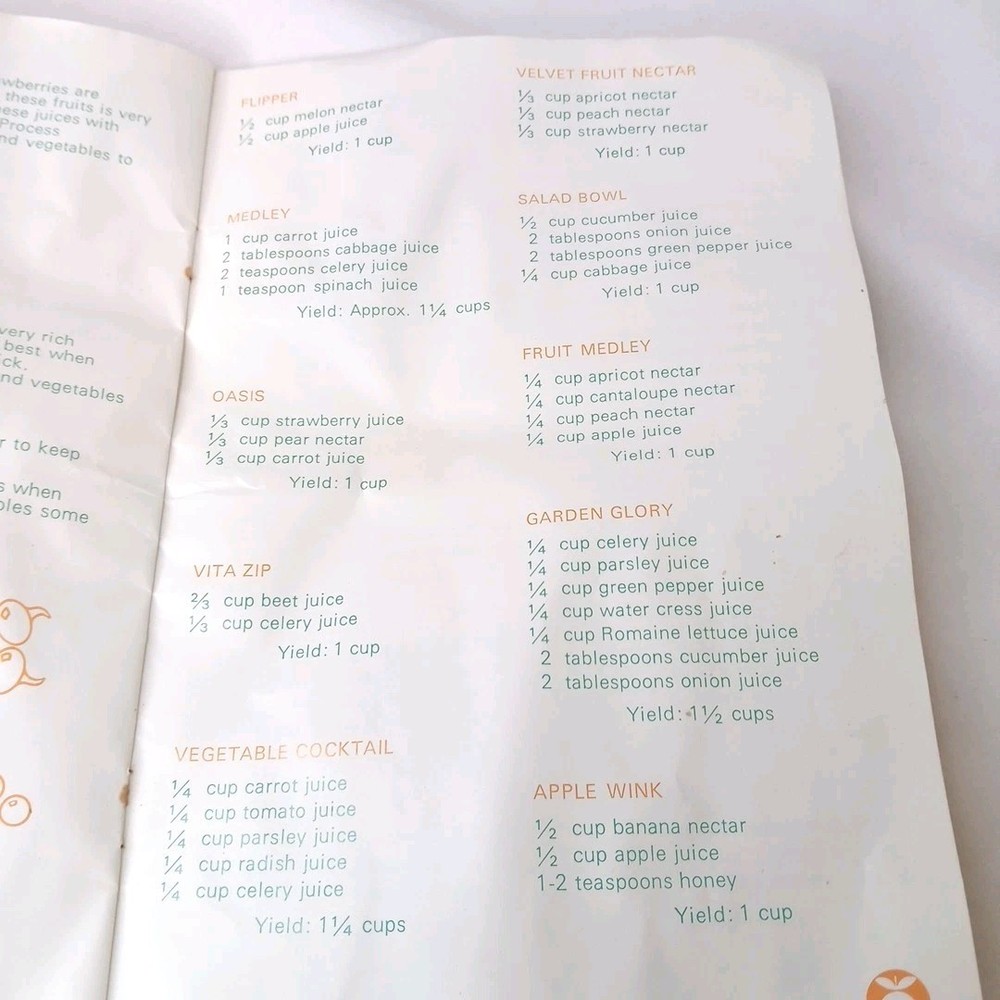 wberries are
these fruits is very
ese juices with
Process
nd vegetables to
very rich
best when
ick.
nd vegetables
r to keep
s when
bles some
FLIPPER
½ cup melon nectar
½ cup apple juice
Yield: 1 cup
MEDLEY
1 cup carrot juice
2 tablespoons cabbage juice
2 teaspoons celery juice
1 teaspoon spinach juice
Yield: Approx. 1¼ cups
OASIS
⅓ cup strawberry juice
⅓ cup pear nectar
⅓ cup carrot juice
Yield: 1 cup
VITA ZIP
⅔ cup beet juice
⅓ cup celery juice
Yield: 1 cup
VEGETABLE COCKTAIL
¼ cup carrot juice
¼ cup tomato juice
¼ cup parsley juice
¼ cup radish juice
¼ cup celery juice
Yield: 1¼ cups
VELVET FRUIT NECTAR
⅓ cup apricot nectar
⅓ cup peach nectar
⅓ cup strawberry nectar
Yield: 1 cup
SALAD BOWL
½ cup cucumber juice
2 tablespoons onion juice
2 tablespoons green pepper juice
¼ cup cabbage juice
Yield: 1 cup
FRUIT MEDLEY
¼ cup apricot nectar
¼ cup cantaloupe nectar
¼ cup peach nectar
¼ cup apple juice
Yield: 1 cup
GARDEN GLORY
¼ cup celery juice
¼ cup parsley juice
¼ cup green pepper juice
¼ cup water cress juice
¼ cup Romaine lettuce juice
2 tablespoons cucumber juice
2 tablespoons onion juice
Yield: 1½ cups
APPLE WINK
½ cup banana nectar
½ cup apple juice
1-2 teaspoons honey
Yield: 1 cup